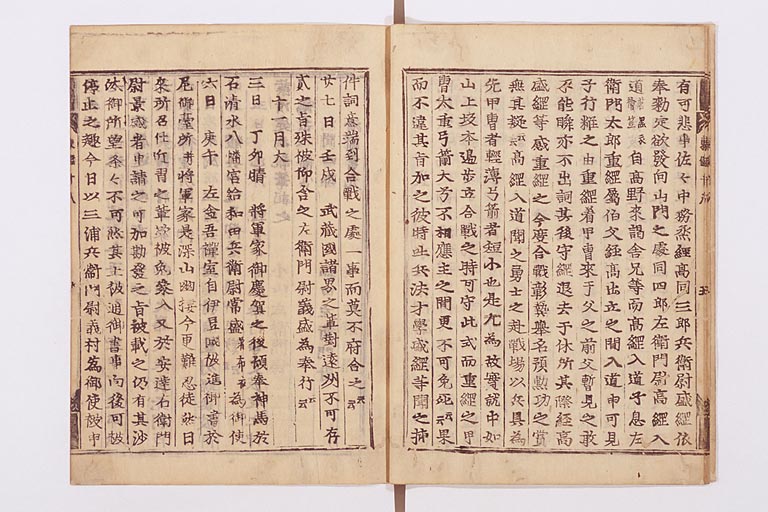 有可悲事佐々木中務丞經高同三郎兵衛尉盛經依
奉勅定欲發向山門之處同四郎左衛門尉高經入
道自高野来謁舍兄等而高經入道子息左
衛門太郎重經屬伯父經高出立之間入道申可見
子行粧之由重經着甲曹来于父之前父暫見之敢
不能瞬亦不出詞其後守經退去于休所其際經高
盛經等感重經之今度合戰彰譽名預勲功之賞
無其疑云々高經入道聞之勇士之赴戰場以兵具為
先甲曹者輕薄弓箭者短小也是尤為故實就中如
山上坂本邊步立合戰之時可守此式而重經之甲
曹太重弓箭大兮不相應主之間更不可免死云々果
而不違其旨加之彼時兵法才學盛經等聞之拝
件詞意端到合戰之處一事而莫不府合之云々
廿七日壬戌 武蔵國諸界之輩對遠州不可存
貳之旨殊被仰含之左衛門尉義盛為奉行云々
十一月大
三日 丁卯晴 將軍家御慶賀之後預奉神馬於
石清水八幡宮給和田兵衛尉常盛著布衣為御使
六日 庚午 左金吾禪室自伊豆國被進御書於
尼御臺所并將軍家是深山幽棲今更難忍徒然日
來所召仕所習之輩被免參入又於安達右衛門
尉景盛者申請之可加勘發之旨被載之仍有其沙
汰御所望条々不可然其上被通御書事向後可被
停止之趣今日以三浦兵衛門尉義村為御使被申